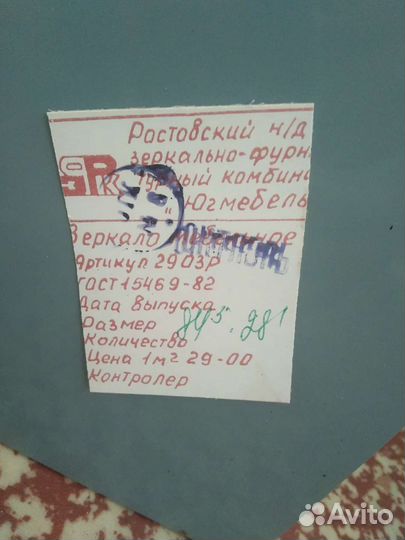 Ростовский н/д
зеркально-фурни
турный комбина
"Югмебель
Зеркало
Артикул 2903Р
ГОСТ 15469-82
Дата выпуска
Размер 845 · 281
Количество
Цена 1м² 29-00
Контролер
Avito